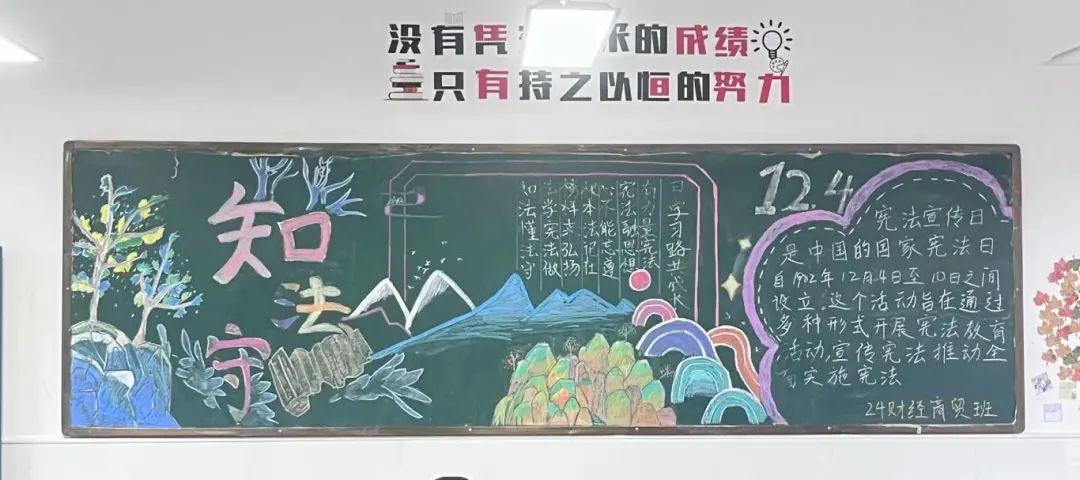 没有凭 的成绩
只有持之以恒的努力
知
法
守
学习路共成长
有力量宪法
宪法融思想
心不能忘遵
法本法记社
学宪法做
知法懂法守
12.4
宪法宣传日
是中国的国家宪法日
自1982年12月4日至10日之间
设立,这个活动旨在通过
多种形式开展宪法教育
活动,宣传宪法推动全
面实施宪法
24财经商贸班